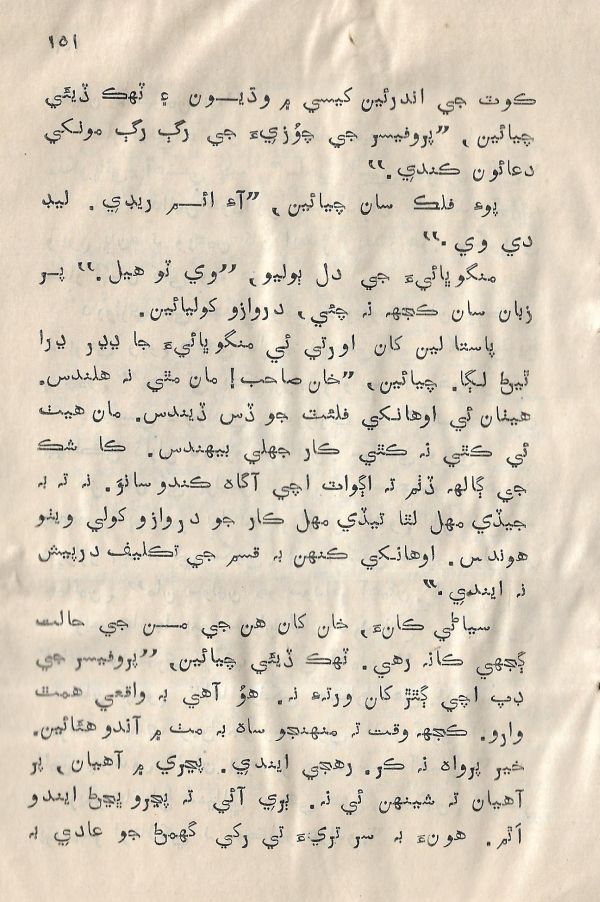 ١٥١
ڪوٽ جي اندرئين کيسي ۾ وڌيـون ۽ ٽهڪ ڏيئي
چيائين, ”پروفيسر جي چؤزيءَ جي رڳ رڳ مونکي
دعائون ڪندي.“
پوءِ فلڪ سان چيائين, ”آءِ ائـم ريڊي. ليڊ
دي وي.“
منگوپائيءَ جي دل ٻوليو, ”وي ٽو هيل.“ پـر
زبان سان ڪجهہ نہ چئي, دروازو کوليائين.
پاستا لين کان اورتي ئي منگوپائيءَ جا ڍڍر ڍرا
ٿيڻ لڳا. چيائين, ”خان صاحب! مان مٿي نہ هلندس.
هيٺان ئي اوهانکي فلئٽ جو ڏس ڏيندس. مان هيٺ
ئي ڪٿي نہ ڪٿي ڪار جهلي بيهندس. ڪا شڪ
جي ڳالهہ ڏٺم تہ اڳواٽ اچي آگاه ڪندوسانوَ. نہ تہ بہ
جيڏي مهل لٿا تيڏي مهل ڪار جو دروازو کولي ويٺو
هوندس. اوهانکي ڪنهن بہ قسم جي تڪليف درپيش
نہ ايندي.“
سياڻي ڪانءَ, خان کان هن جي مـن جي حالت
ڳجهي ڪانہ رهي. ٽهڪ ڏيئي چيائين, ”پروفيسر جي
ڊپ اچي ڳٽڙ کان ورتءِ نہ. هؤ آهي بہ واقعي همت
وارو. ڪجهہ وقت تہ منهنجو ساه بہ مٺ ۾ آندو هئائين.
خير پرواه نہ ڪر. رهجي ايندي. پڃري ۾ آهيان, پر
آهيان تہ شينهن ئي نہ. ٻري آئي تہ پڃرو ڀڃڻ ايندو
اٿم. هونءَ بہ سر تريءَ تي رکي گهمڻ جو عادي بہ